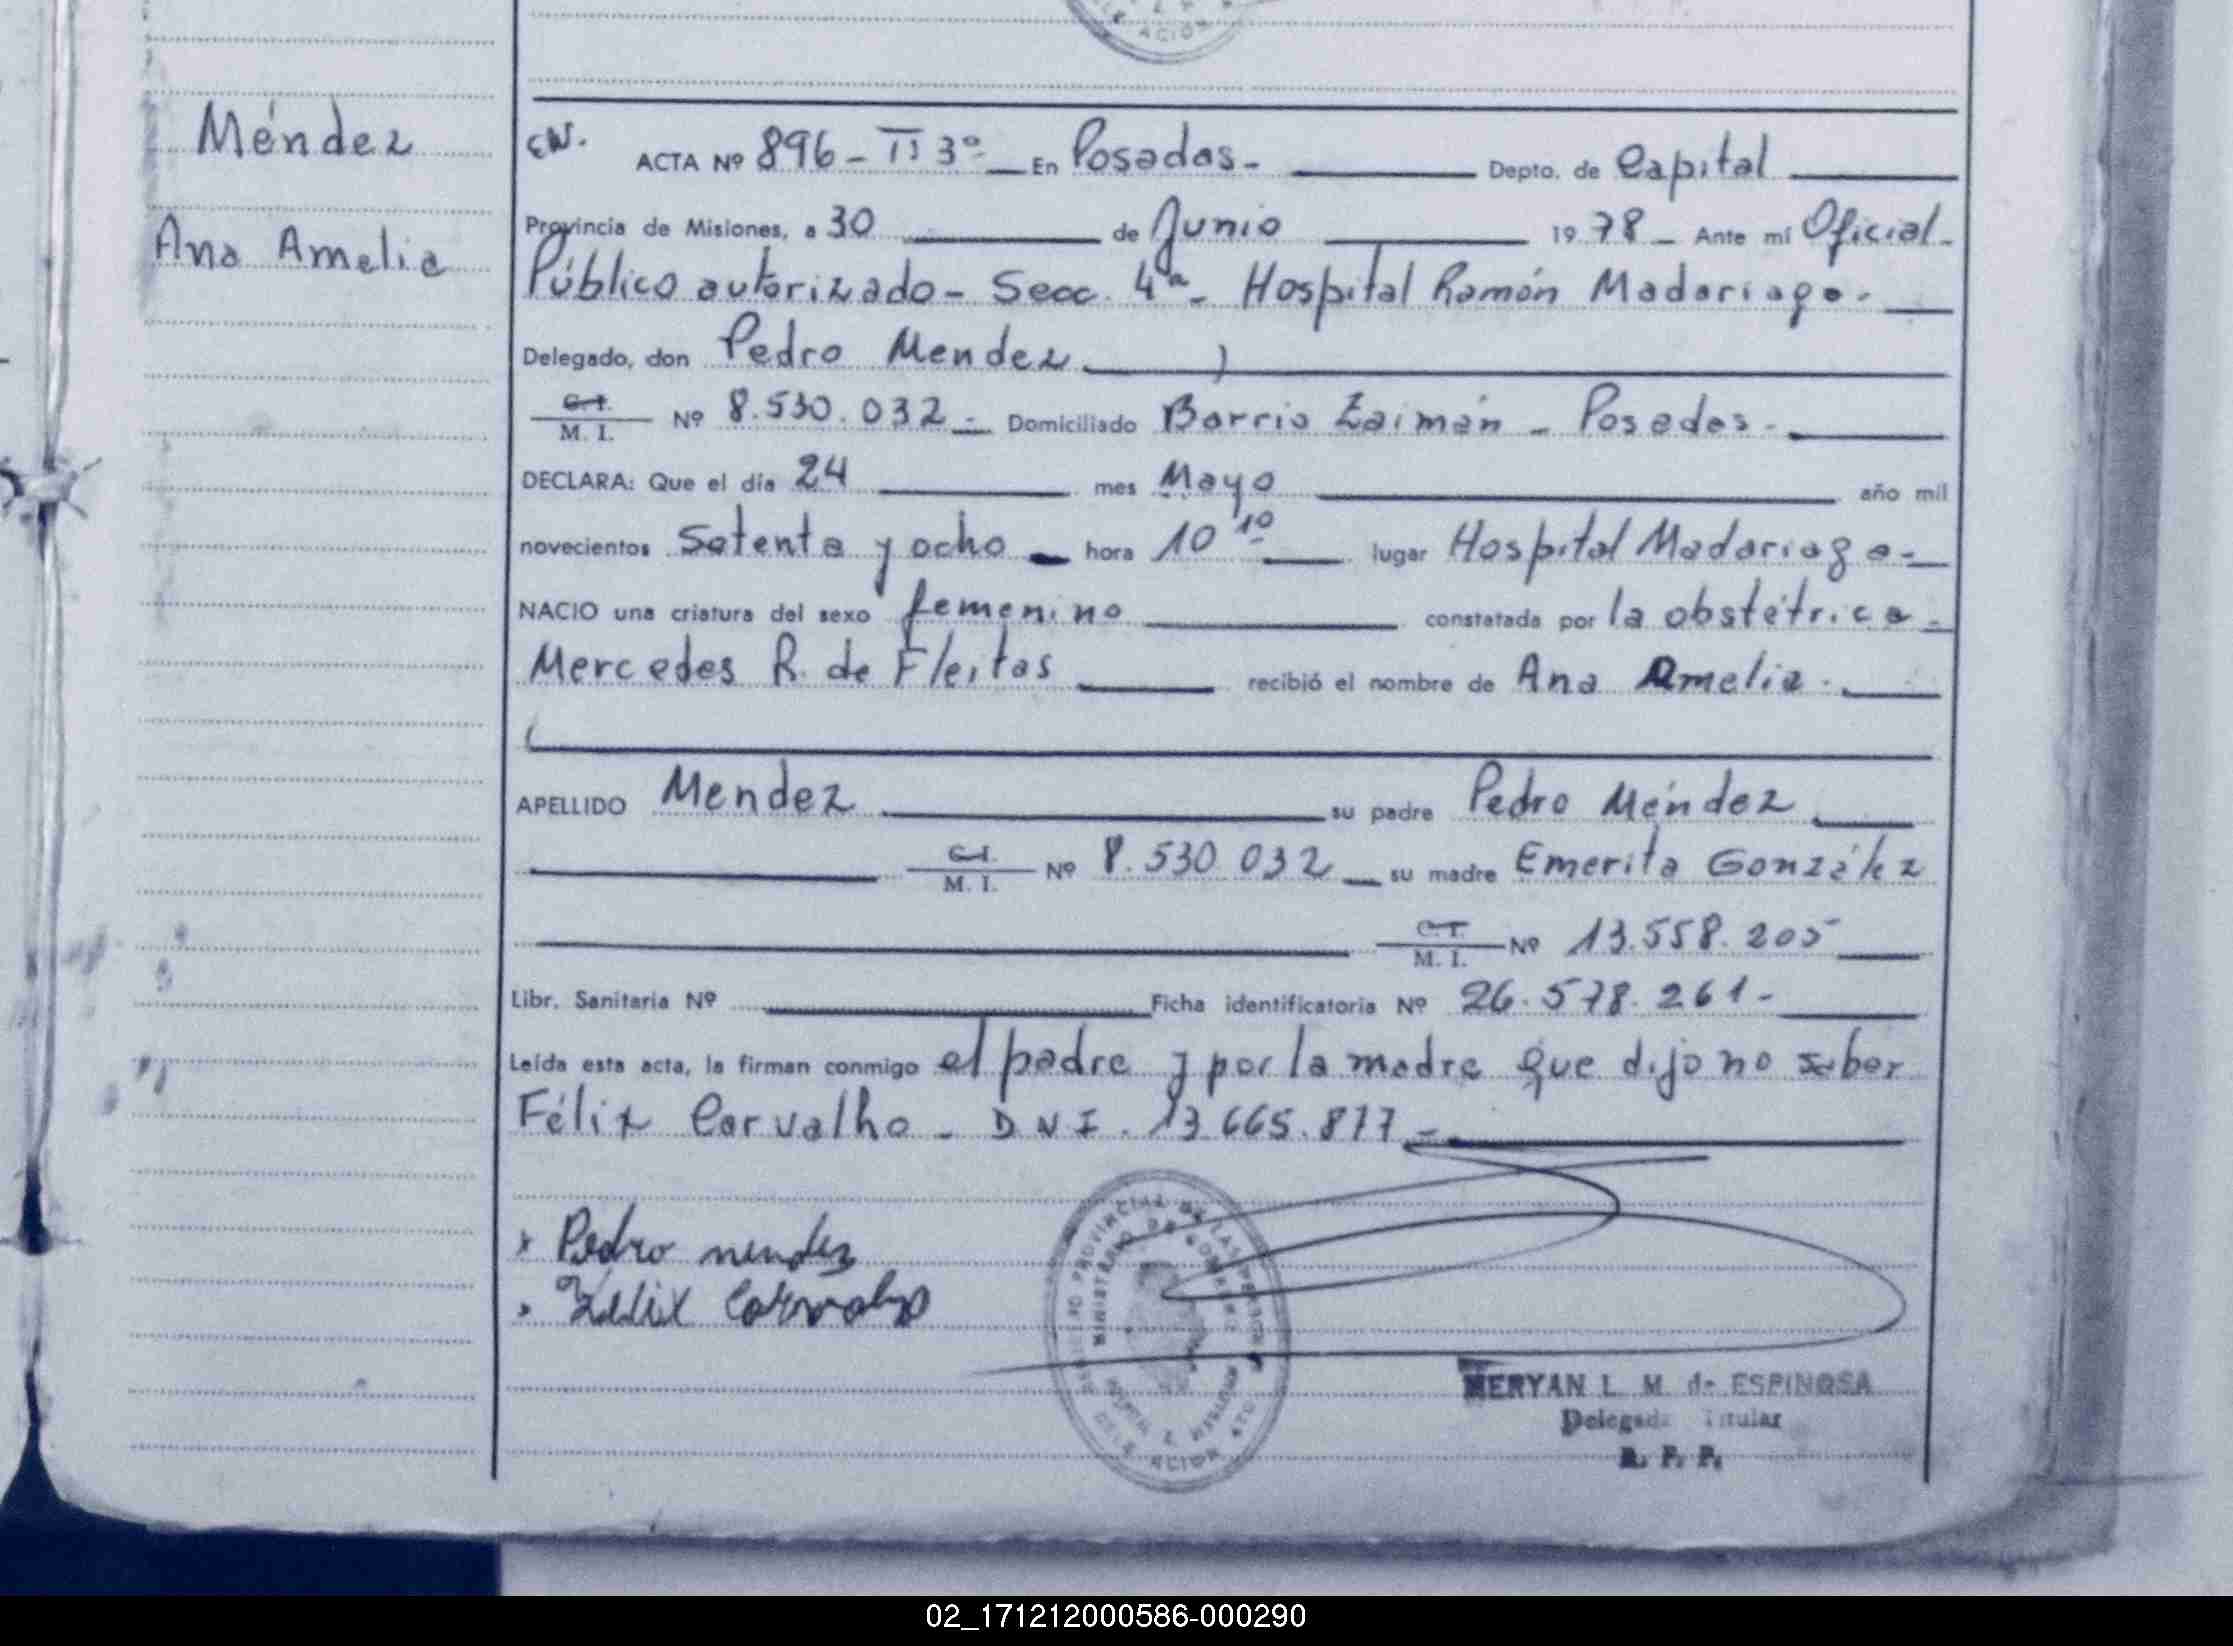 Méndez
Ana Amelia
CN. ACTA Nº 896 - TI 3º - En Posadas - Depto. de Capital
Provincia de Misiones, a 30 de Junio 1978 - Ante mí Oficial
Público autorizado - Secc. 4ª - Hospital Ramón Madariaga -
Delegado, don Pedro Mendez
C.I. M. I. Nº 8.530.032 - Domiciliado Barrio Zaimán - Posadas -
DECLARA: Que el día 24 mes Mayo año mil
novecientos Setenta y ocho - hora 10 10 lugar Hospital Madariaga -
NACIO una criatura del sexo femenino constatada por la obstétrica -
Mercedes R. de Fleitas recibió el nombre de Ana Amelia -
APELLIDO Mendez su padre Pedro Méndez
C.I. M. I. Nº 8.530.032 su madre Emerita González
C.I. M. I. Nº 13.558.205
Libr. Sanitaria Nº Ficha identificatoria Nº 26.578.261 -
Leída esta acta, la firman conmigo el padre y por la madre que dijo no saber
Félix Carvalho - DNI. 13.665.877 -
x Pedro mendez
x Felix Carvalho
MERYAN L. M. de ESPINOSA
Delegada Titular
R. P. P.
02_171212000586-000290